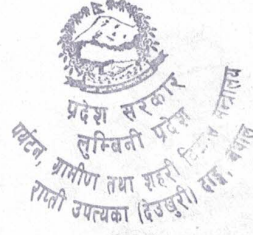 प्रदेश सरकार
लुम्बिनी प्रदेश
पर्यटन, ग्रामीण तथा शहरी विकास मन्त्रालय
राप्ती उपत्यका (देउखुरी) दाङ्ग, नेपाल